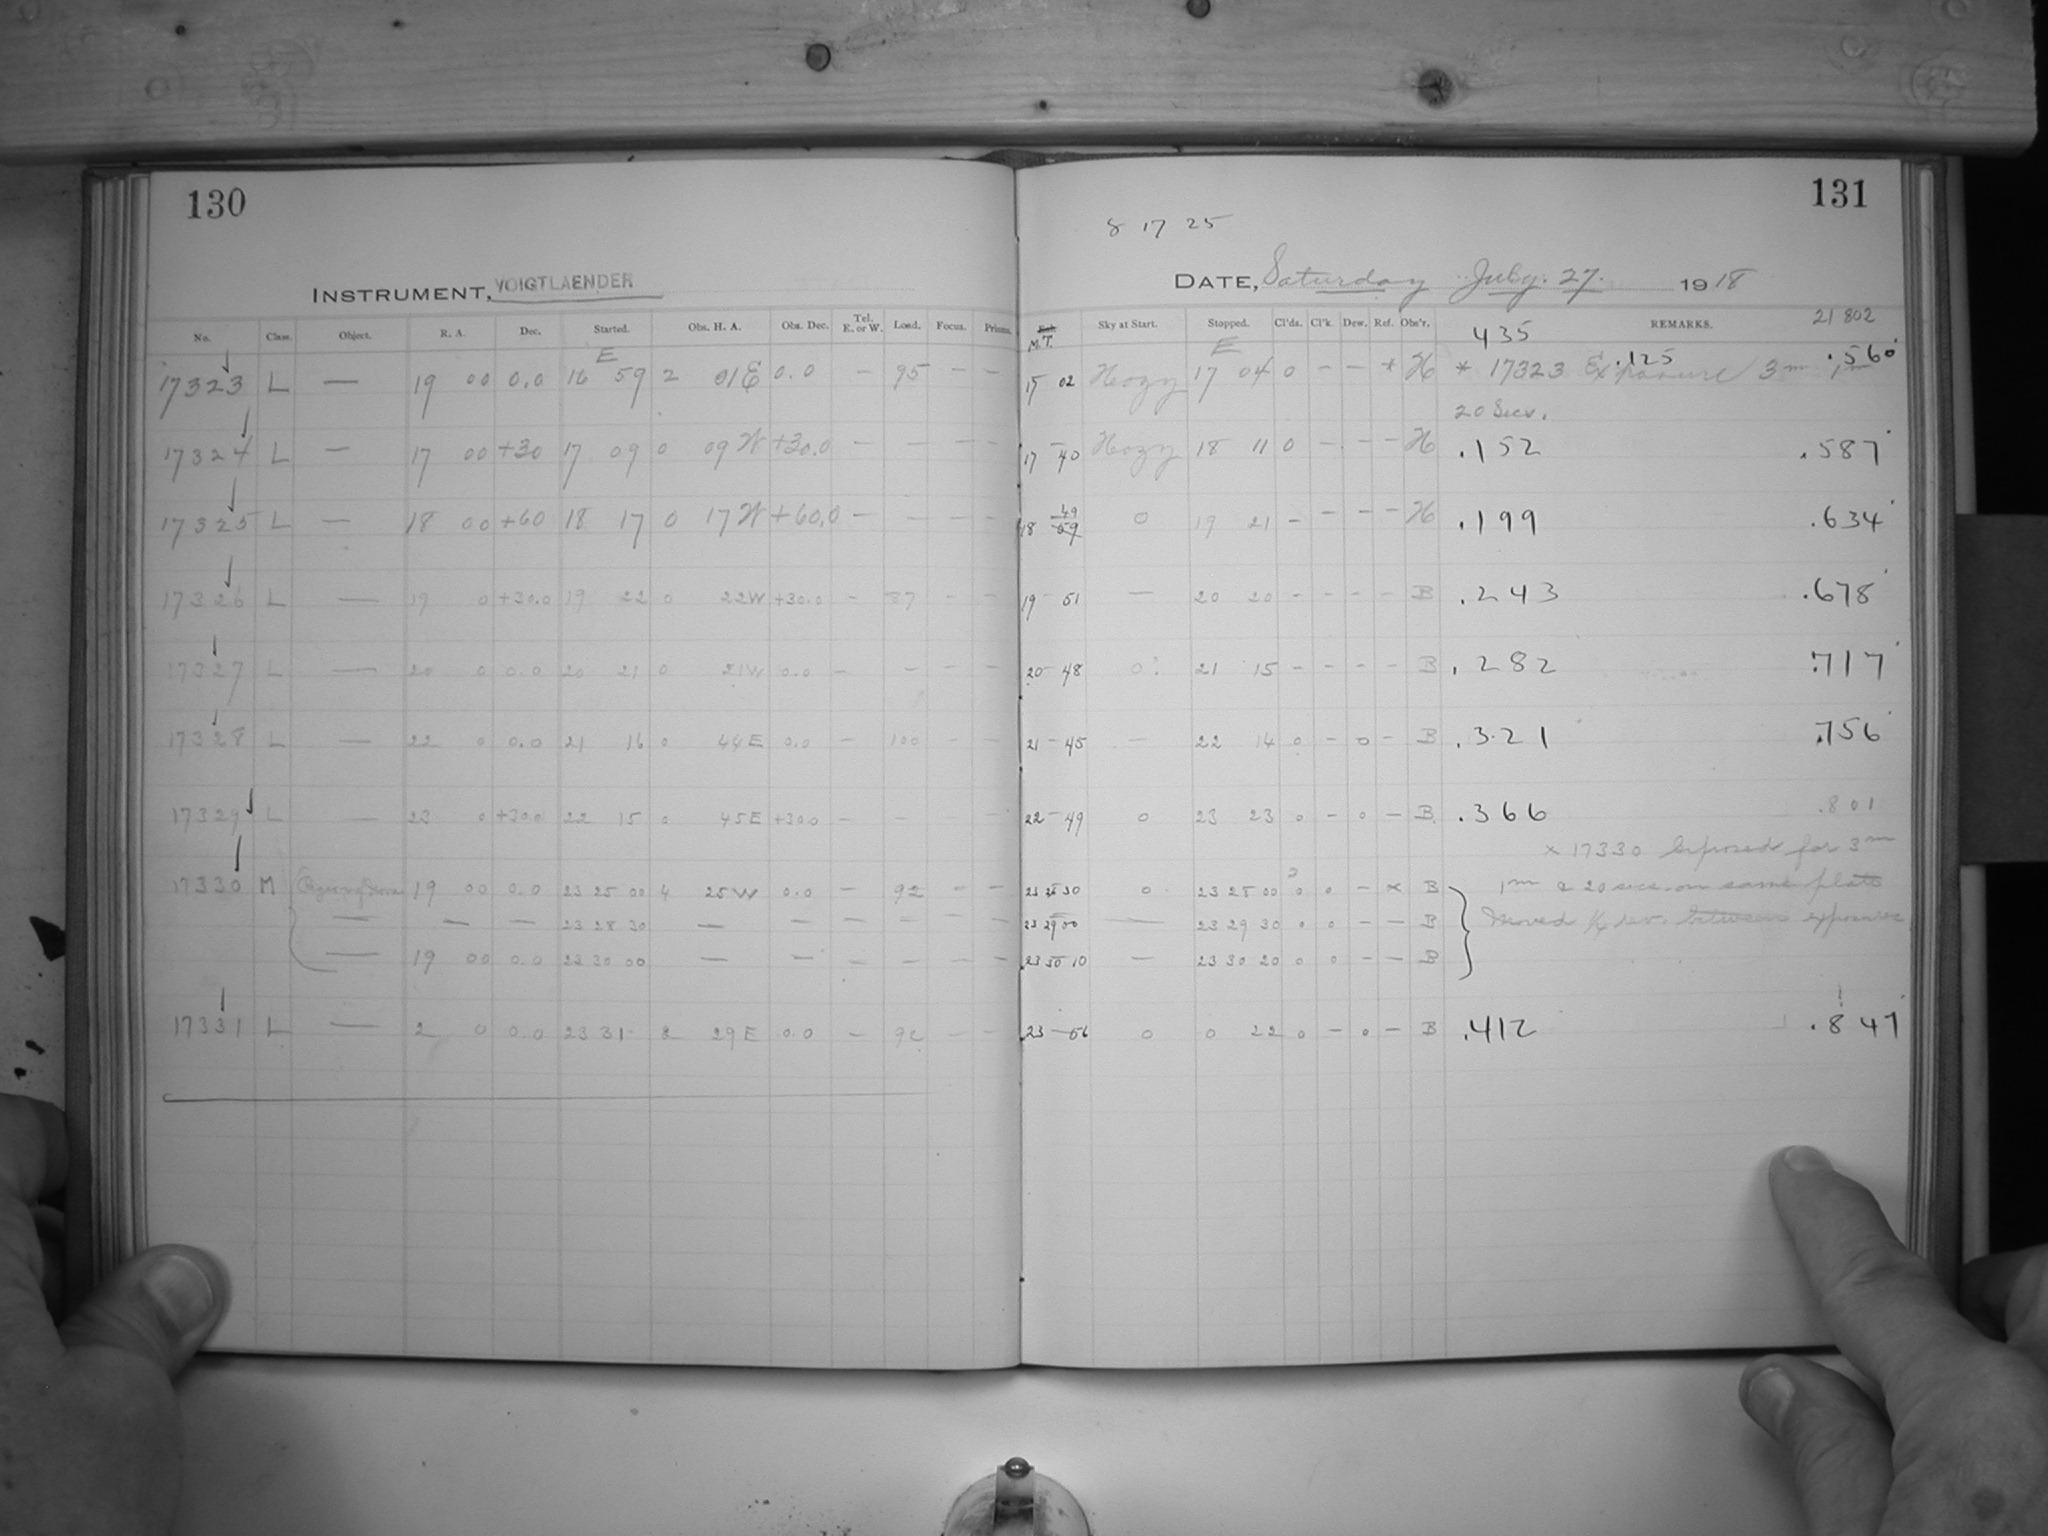 130
131
8 17 25
INSTRUMENT, VOIGTLAENDER
DATE, Saturday July. 27. 1918
No. Class. Object. R. A. Dec. Started. Obs. H. A. Obs. Dec. Tel. E. or W. Load. Focus. Prisms. M.T. Sky at Start. Stopped. Cl'ds. Cl'k. Dew. Ref. Obs'r. 435 REMARKS. 21 802
E E
17323 L — 19 00 0.0 16 59 2 01 E 0.0 — 95 — — 17 02 Hazy 17 04 0 — — * H * 17323 Exposure .125 3m 1m .560
20 Secs.
17324 L — 17 00 +30 17 09 0 09 W +30.0 — — — — 17 40 Hazy 18 11 0 — — — H .152 .587
17325 L — 18 00 +60 18 17 0 17 W +60.0 — — — — 18 49 0 19 21 — — — — H .199 .634
17326 L — 19 0 +30.0 19 22 0 22W +30.0 — 87 — — 19 51 — 20 20 — — — — B .243 .678
17327 L — 20 0 0.0 20 21 0 21W 0.0 — — — — 20 48 0? 21 15 — — — — B .282 .717
17328 L — 22 0 0.0 21 16 0 44E 0.0 — 100 — — 21 45 — 22 14 0 — 0 — B .321 .756
17329 L — 23 0 +30.0 22 15 0 45E +30.0 — — — — 22 49 0 23 23 0 — 0 — B .366 .801
x 17330 Exposed for 3m
17330 M 19 00 0.0 23 25 00 4 25W 0.0 — 92 — — 23 30 0 23 00 0 0 — x B 1m & 20 secs. on same plate
— — — 23 28 30 — — — — — — 23 29 00 — 23 29 30 0 0 — — B Moved between exposures
— 19 00 0.0 23 30 00 — — — — — — 23 30 10 — 23 30 20 0 0 — — B
17331 L — 2 0 0.0 23 31 2 29E 0.0 — 92 — — 23 56 0 0 22 0 — 0 — B .412 .847